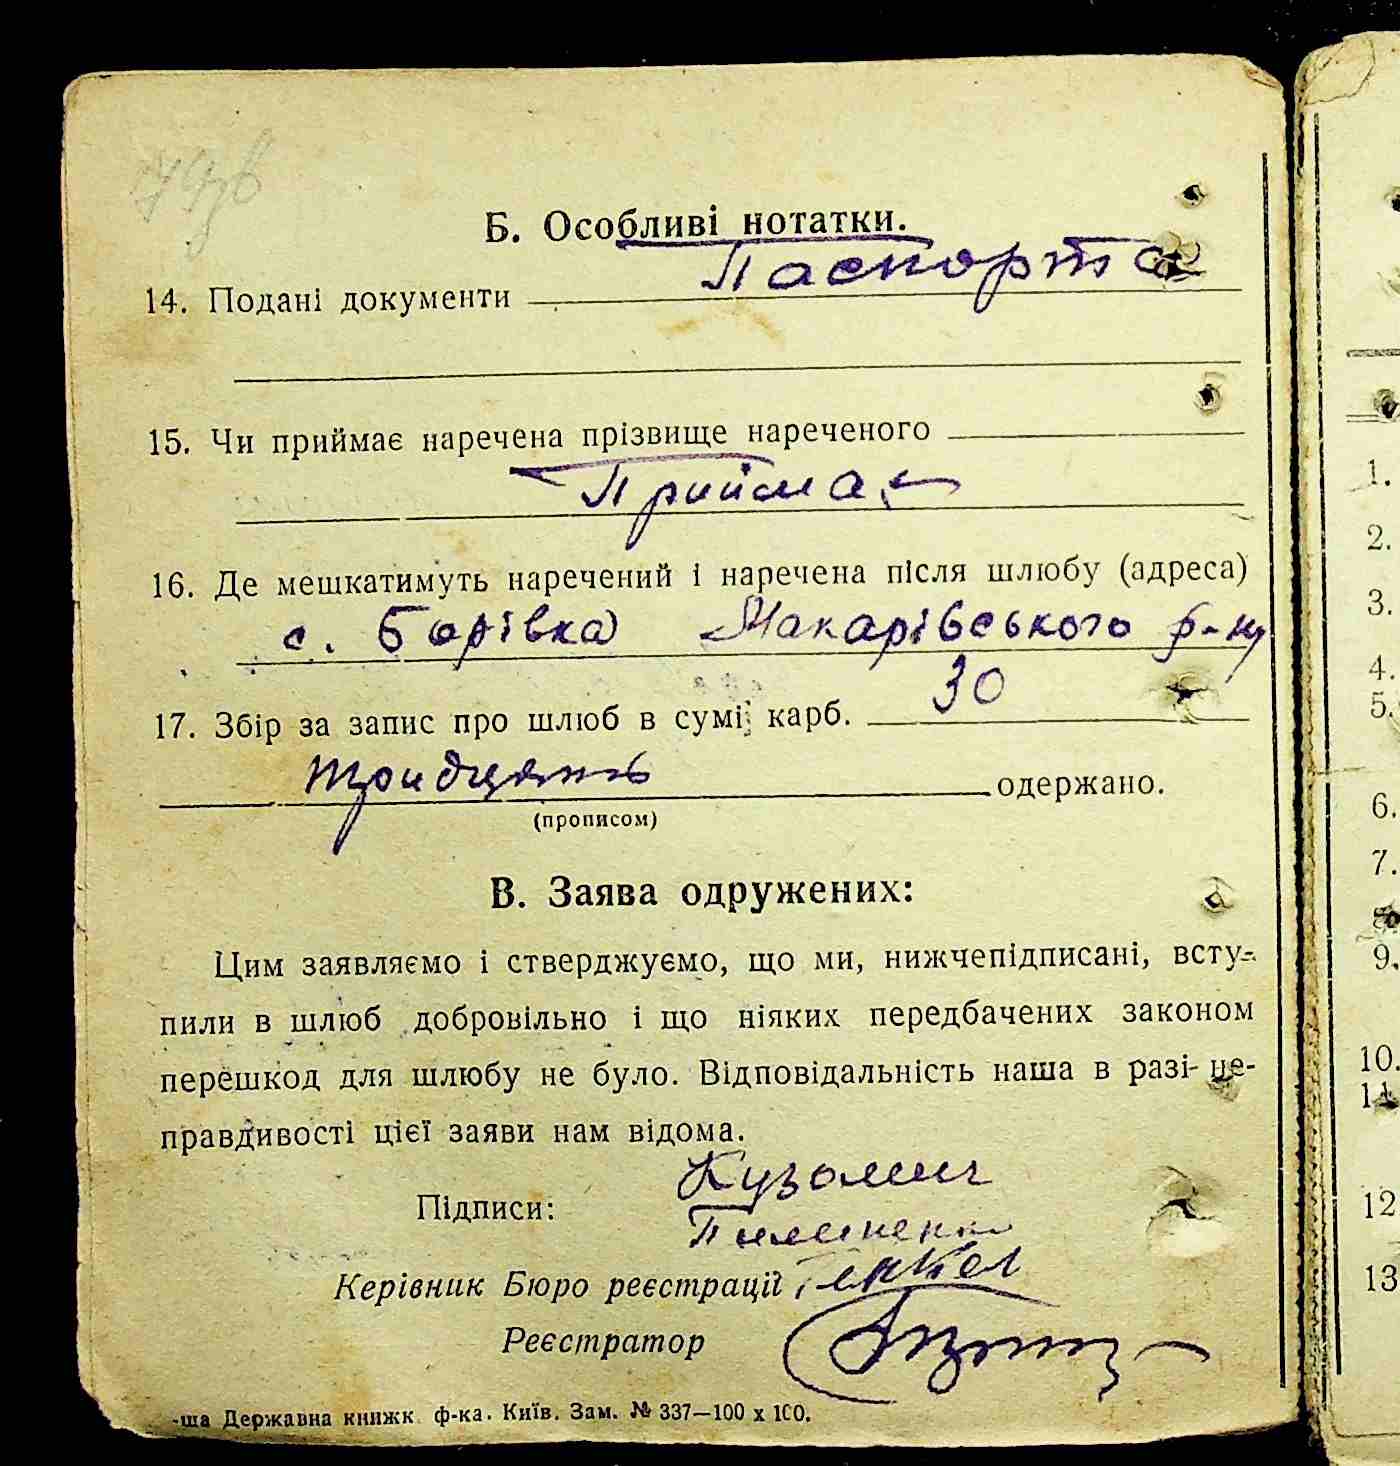 Б. Особливі нотатки.
14. Подані документи Паспорта
15. Чи приймає наречена прізвище нареченого
Приймає
16. Де мешкатимуть наречений і наречена після шлюбу (адреса)
с. Борівка Макарівського р-ну
17. Збір за запис про шлюб в сумі карб. 30
тридцять одержано.
(прописом)
В. Заява одружених:
Цим заявляємо і стверджуємо, що ми, нижчепідписані, всту-
пили в шлюб добровільно і що ніяких передбачених законом
перешкод для шлюбу не було. Відповідальність наша в разі не-
правдивості цієї заяви нам відома.
Підписи:
Керівник Бюро реєстрації
Реєстратор
-ша Державна книжк. ф-ка. Київ. Зам. № 337—100 х 100.
1.
2.
3.
4.
5.
6.
7.
8.
9.
10.
11.
12
13